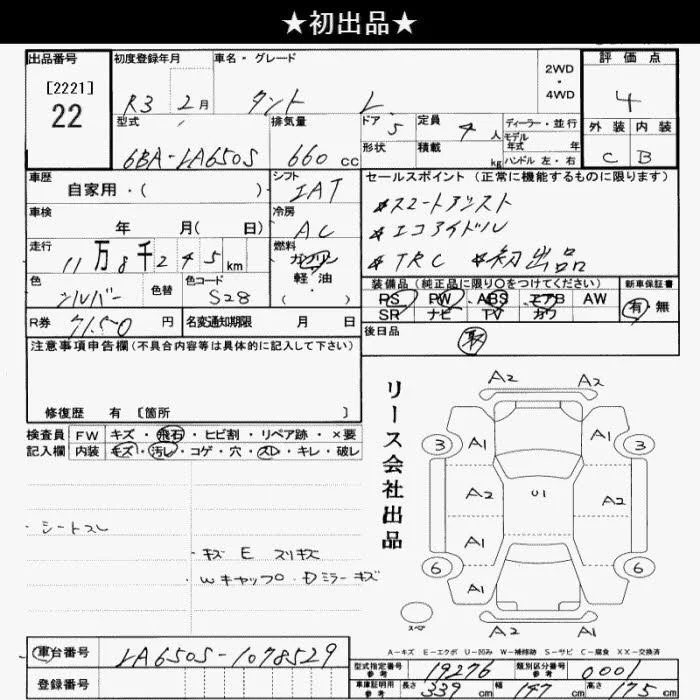 ★初出品★
出品番号 初度登録年月 車名・グレード 2WD・4WD 評価点
[2221]
22
R3 2月 タント L 4
型式 排気量 ドア 5 定員 4 人 ディーラー・並行 外装 内装
形状 積載 kg モデル年式 年 ハンドル 左・右
6BA-LA650S 660 cc C B
車歴 シフト セールスポイント(正常に機能するものに限ります)
自家用・( ) IAT
★スマートアシスト
車検 冷房
年 月( 日) AC
★エコアイドル
走行 燃料
11万8千245km ガソリン
★TRC ★初出品
軽・油
( )
色 色替 色コード 装備品(純正品に限り○をつけてください) 新車保証書
シルバー S28 PS PW ABS エアB AW 有 無
SR ナビ TV カワ
R券 7150 円 名変通知期限 月 日 後日品
取
注意事項申告欄(不具合内容等は具体的に記入して下さい)
修復歴 有 [箇所 ]
検査員 FW キズ・飛石・ヒビ割・リペア跡・×要
記入欄 内装 キズ・汚し・コゲ・穴・スレ・キレ・破レ
・シートスレ
・キズ E スリキズ
・Wキャップ・Dミラーキズ
リース会社出品
A2 A2
3 A1 A1 3
A2 U1 A2
A1
6 6
A1
スペア A2 A2
A-キズ E-エクボ U-凹み W-補修跡 S-サビ C-腐食 XX-交換済
車台番号 LA650S-1078529
登録番号
型式指定番号 参考 19276 類別区分番号 参考 0001
車庫証明用 参考 長さ 339 cm 幅 147 cm 高さ 175 cm